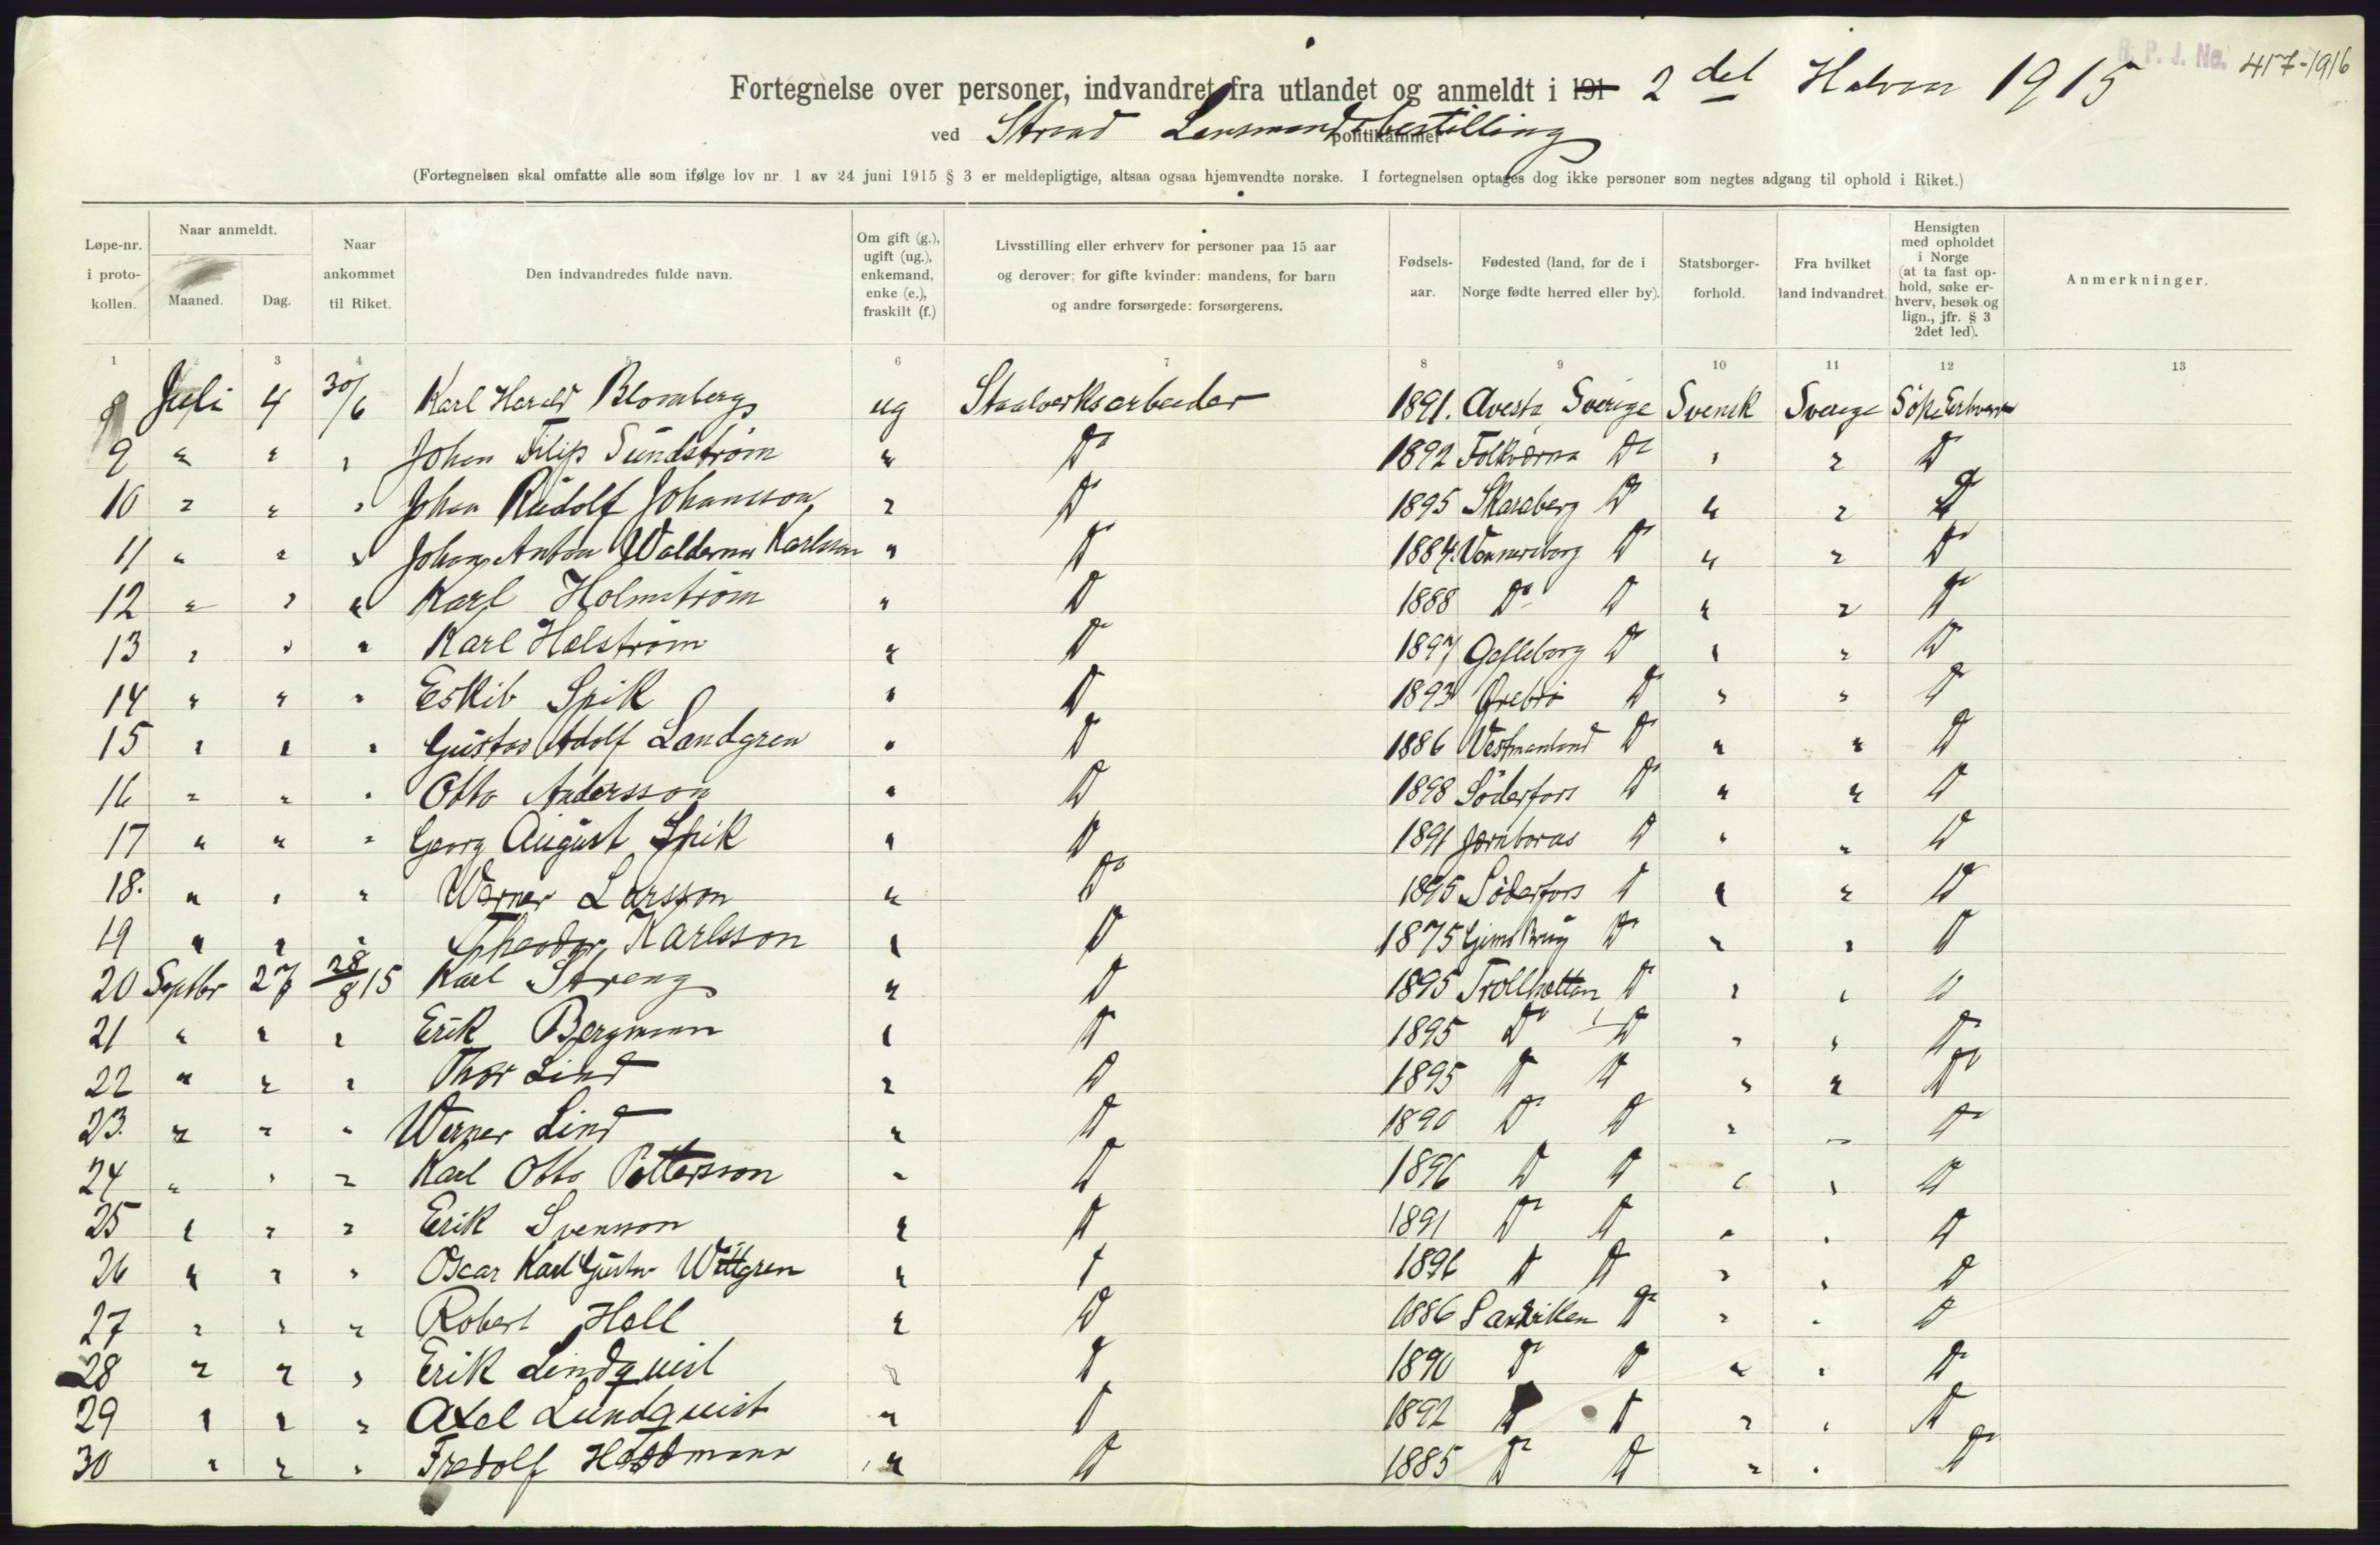 B. P. J. No. 417-1916
Fortegnelse over personer, indvandret fra utlandet og anmeldt i 191 2det Halvaar 1915
ved Strand Lensmandsbestilling politikammer
(Fortegnelsen skal omfatte alle som ifølge lov nr. 1 av 24 juni 1915 § 3 er meldepligtige, altsaa ogsaa hjemvendte norske. I fortegnelsen optages dog ikke personer som negtes adgang til ophold i Riket.)
Løpe-nr. i proto-kollen. Naar anmeldt. Maaned. Dag. Naar ankommet til Riket. Den indvandredes fulde navn. Om gift (g.), ugift (ug.), enkemand, enke (e.), fraskilt (f.) Livsstilling eller erhverv for personer paa 15 aar og derover; for gifte kvinder: mandens, for barn og andre forsørgede: forsørgerens. Fødsels-aar. Fødested (land, for de i Norge fødte herred eller by). Statsborger-forhold. Fra hvilket land indvandret. Hensigten med opholdet i Norge (at ta fast op-hold, søke er-hverv, besøk og lign., jfr. § 3 2det led). Anmerkninger.
1 2 3 4 5 6 7 8 9 10 11 12 13
8 Juli 4 30/6 Karl Harald Blomberg ug Staalverksarbeider 1891. Avesta Sverige Svensk Sverige Söke Erhverv
9 " " " Johan Filip Sundström " Do 1892 Folkærna Do " " Do
10 " " " Johan Rudolf Johansson " Do 1895 Skaraberg Do " " Do
11 " " " Johan Anton Waldemar Karlsson " Do 1884. Vennersborg Do " " Do
12 " " " Karl Holmström " Do 1888 Do Do " " Do
13 " " " Karl Halström " Do 1897 Gefleborg Do " " Do
14 " " " Eskil Spik " Do 1893 Ørebrö Do " " Do
15 " " " Gustav Adolf Landgren " Do 1886 Vestmanland Do " " Do
16 " " " Otto Andersson " Do 1898 Söderfors Do " " Do
17 " " " Georg August Spik " Do 1891 Do " " Do
18. " " " Werner Larsson " Do 1895 Söderfors Do " " Do
19 " " " Theodor Karlsson " Do 1875 Do " " Do
20 Septbr 27 28/8 15 Karl Streng " Do 1895 Trollhættan Do " " Do
21 " " " Erik Bergman " Do 1895 Do Do " " Do
22 " " " Thor Lind " Do 1895 Do Do " " Do
23. " " " Werner Lind " Do 1890 Do Do " " Do
24 " " " Karl Otto Pettersson " Do 1896 Do Do " " Do
25 " " " Erik Svensson " Do 1891 Do Do " " Do
26 " " " Oscar Karl Gustav Wittgren " Do 1896 Do Do " " Do
27 " " " Robert Hall " Do 1886 Sandviken Do " " Do
28 " " " Erik Lindquist " Do 1890 Do Do " " Do
29 " " " Axel Lundquist " Do 1892 Do Do " " Do
30 " " " Fredolf " Do 1885 Do Do " " Do